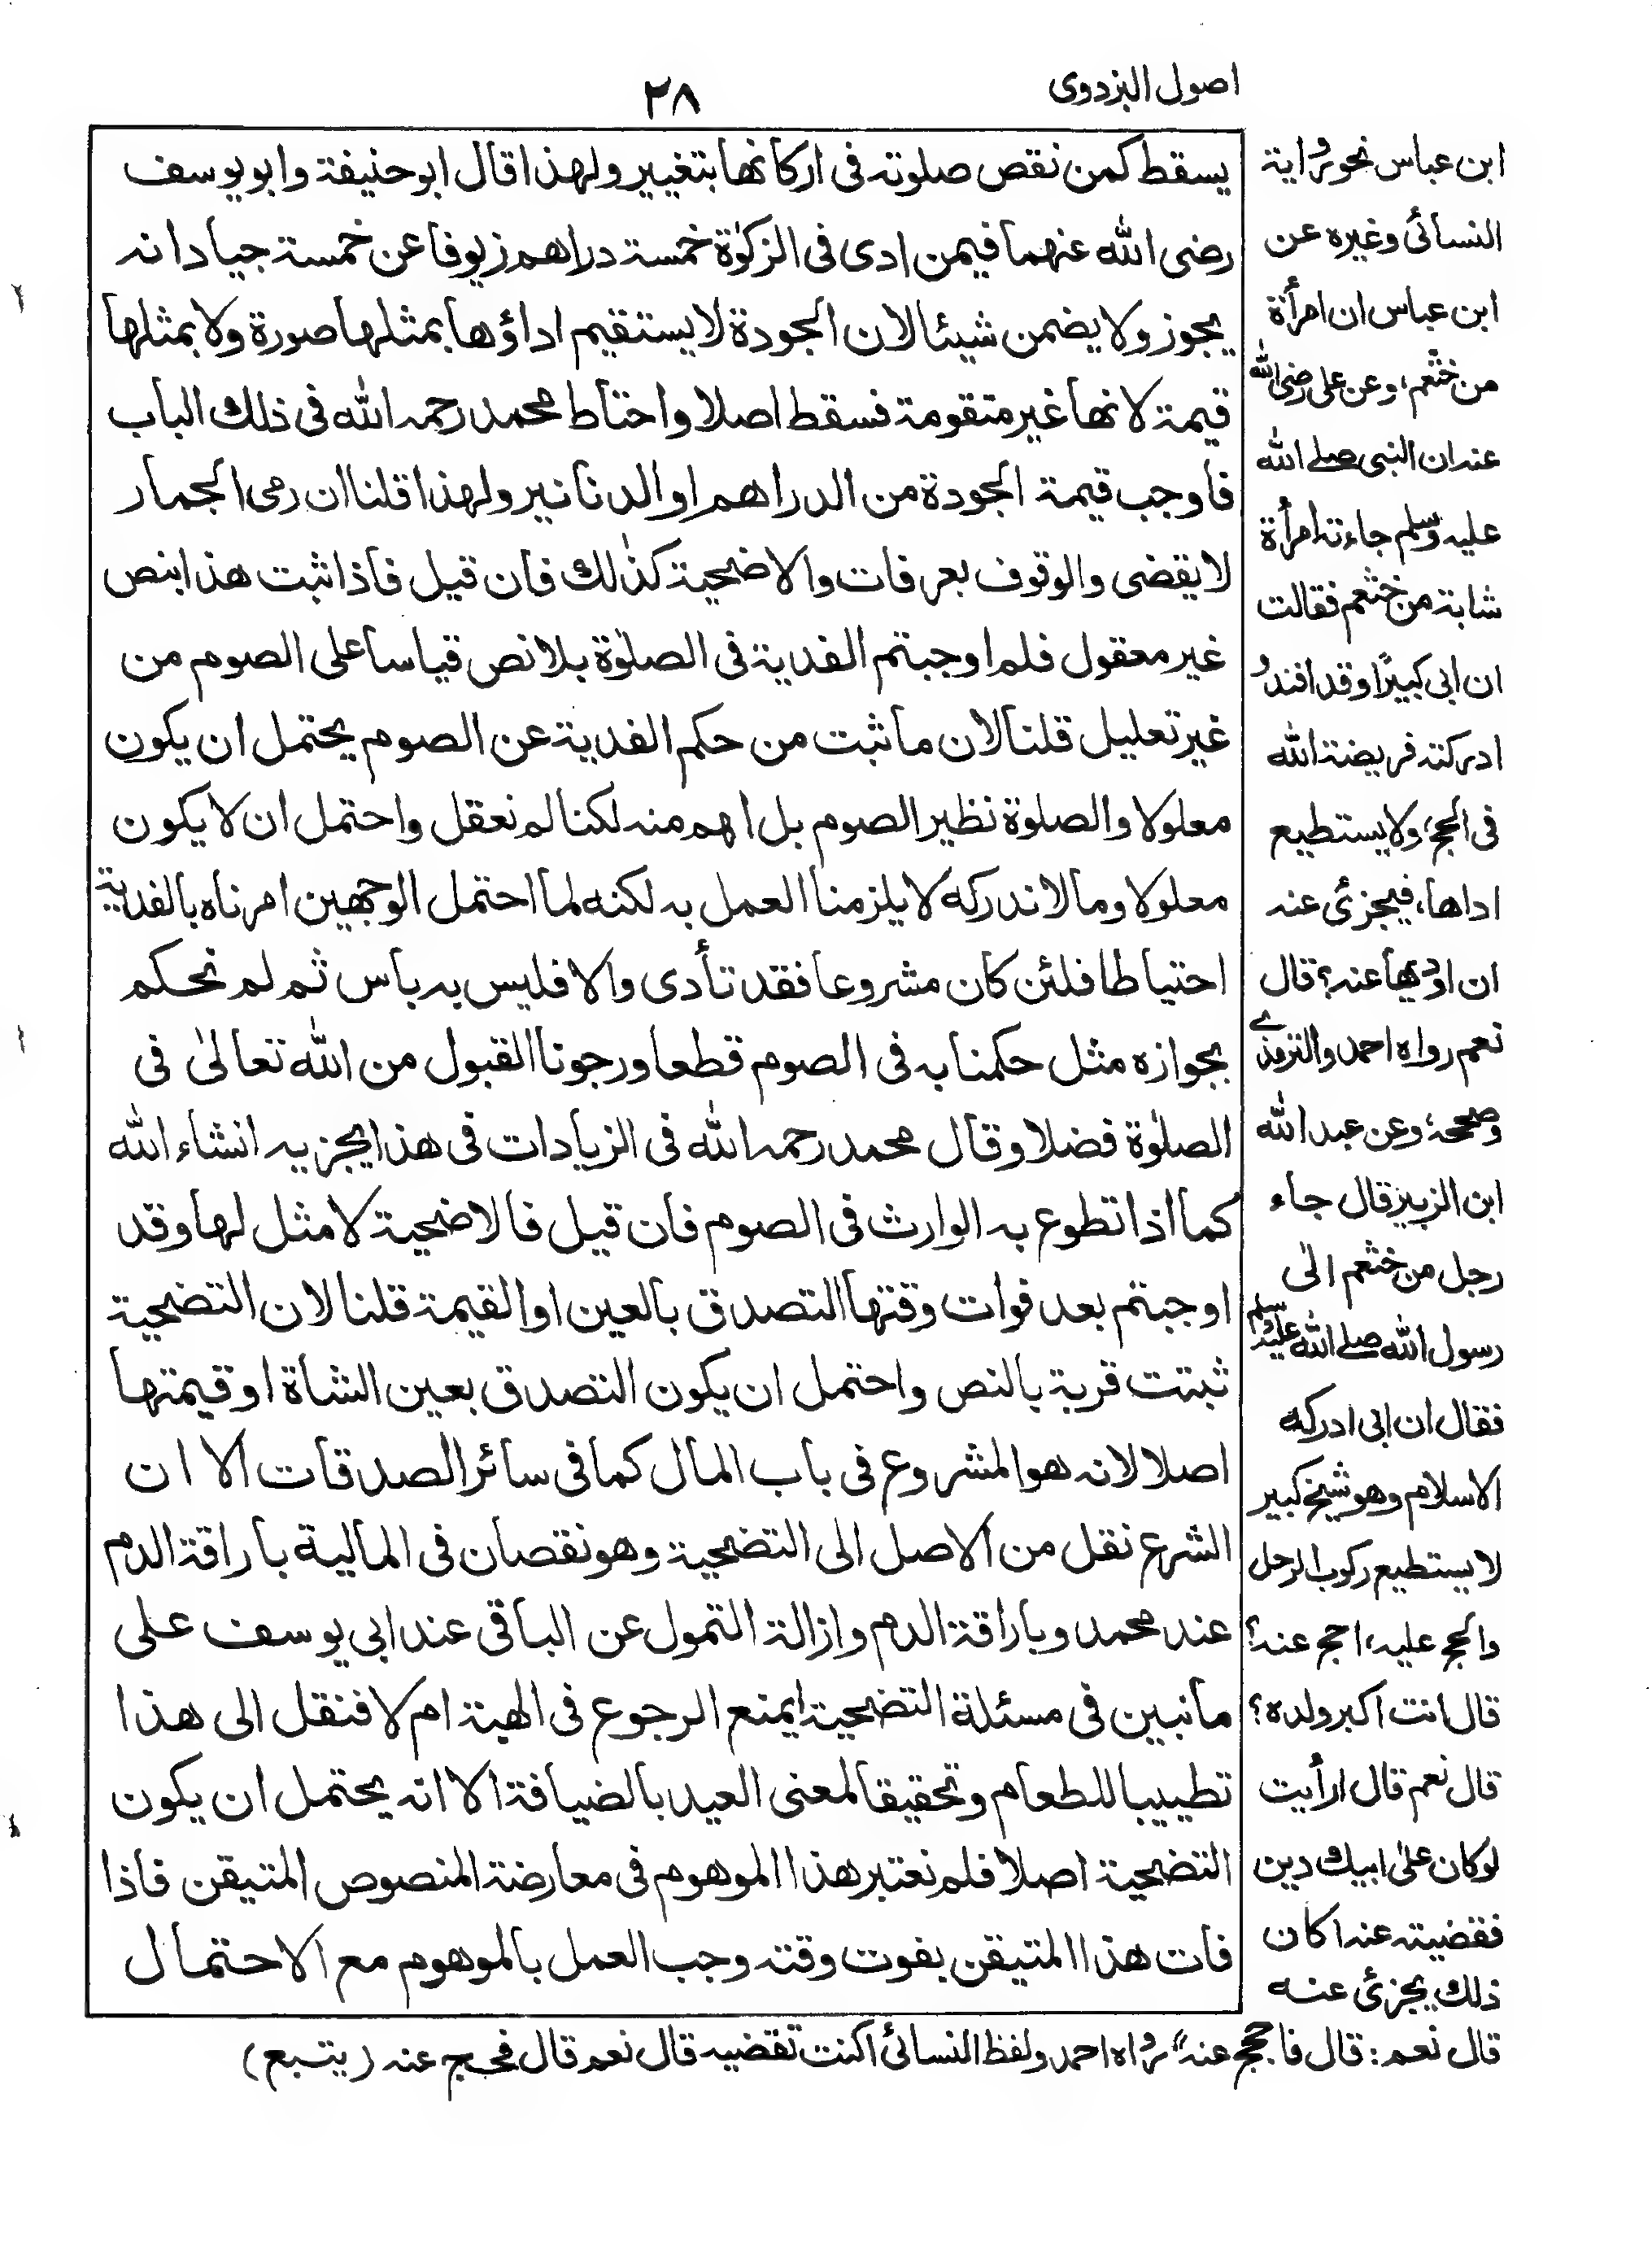 اصول البزدوی
۲۸
يسقط كمن نقص صلوته فى اركانها بتغيير ولهذا قال ابو حنيفة وابو يوسف
رضى الله عنهما فيمن ادى فى الزكوٰة خمسة دراهم زيوفا عن خمسة جياد انه
يجوز ولا يضمن شيئا لان الجودة لا يستقيم اداؤها بمثلها صورة ولا بمثلها
قيمة لانها غير متقومة فسقط اصلا واحتاط محمد رحمه الله فى ذلك الباب
فاوجب قيمة الجودة من الدراهم او الدنانير ولهذا قلنا ان رمى الجمار
لا يقضى والوقوف بعرفات والاضحية كذٰلك فان قيل فاذا ثبت هذا بنص
غير معقول فلم اوجبتم الفدية فى الصلوٰة بلا نص قياسا على الصوم من
غير تعليل قلنا لان ما ثبت من حكم الفدية عن الصوم يحتمل ان يكون
معلولا والصلوة نظير الصوم بل اهم منه لكنا لم نعقل واحتمل ان لا يكون
معلولا وما لا ندركه لا يلزمنا العمل به لكنه لما احتمل الوجهين امرناه بالفدية
احتياطا فلئن كان مشروعا فقد تأدى والا فليس به باس ثم لم نحكم
بجوازه مثل حكمنا به فى الصوم قطعا ورجونا القبول من الله تعالىٰ فى
الصلوٰة فضلا وقال محمد رحمه الله فى الزيادات فى هذا يجزيه انشاء الله
كما اذا تطوع به الوارث فى الصوم فان قيل فالاضحية لا مثل لها وقد
اوجبتم بعد فوات وقتها التصدق بالعين او القيمة قلنا لان التضحية
ثبتت قربة بالنص واحتمل ان يكون التصدق بعين الشاة او قيمتها
اصلا لانه هو المشروع فى باب المال كما فى سائر الصدقات الا ان
الشرع نقل من الاصل الى التضحية وهو نقصان فى المالية باراقة الدم
عند محمد وباراقة الدم وازالة التمول عن الباقى عند ابى يوسف على
ما نبين فى مسئلة التضحية ايمنع الرجوع فى الهبة ام لا فنقل الى هذا
تطييبا للطعام وتحقيقا لمعنى العيد بالضيافة الا انه يحتمل ان يكون
التضحية اصلا فلم نعتبر هذا الموهوم فى معارضة المنصوص المتيقن فاذا
فات هذا المتيقن بفوت وقته وجب العمل بالموهوم مع الاحتمال
ابن عباس نحو رواية
النسائى وغيره عن
ابن عباس ان امرأة
من خثعم، وعن على رضى الله
عنه ان النبى صلے الله
عليه وسلم جاءته امرأة
شابة من خثعم فقالت
ان ابى كبيرًا وقد افند و
ادركته فريضة الله
فى الحج، ولا يستطيع
اداها، فيجزئ عنه
ان اؤديها عنه؟ قال
نعم رواه احمد والترمذے
وصححه، وعن عبد الله
ابن الزبير قال جاء
رجل من خثعم الٰى
رسول الله صلے الله عليه وسلم
فقال ان ابى ادركه
الاسلام وهو شيخ كبير
لا يستطيع ركوب الرحل
والحج عليه، احج عنه؟
قال انت اكبر ولده؟
قال نعم قال ارأيت
لو كان علىٰ ابيك دين
فقضيته عنه اكان
ذلك يجزئ عنه
قال نعم: قال فاحجج عنه" رواه احمد ولفظ النسائى اكنت تقضيه قال نعم قال فحج عنه (يتبع)